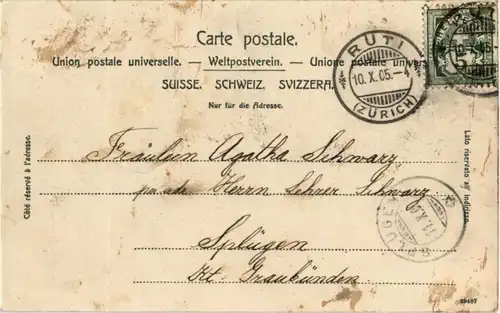 Carte postale.
Union postale universelle. — Weltpostverein. — Unione postale univers
SUISSE. SCHWEIZ. SVIZZERA.
Nur für die Adresse.
RÜTI
10.X.05.-4
(ZÜRICH)
10.X.05
5
Côté réservé à l'adresse.
Lato riservato all'indirizzo.
Fräulein Agatha Schwarz
Herrn Lehrer Schwarz
Splügen
Kt. Graubünden
SPLÜGEN
11.X.05